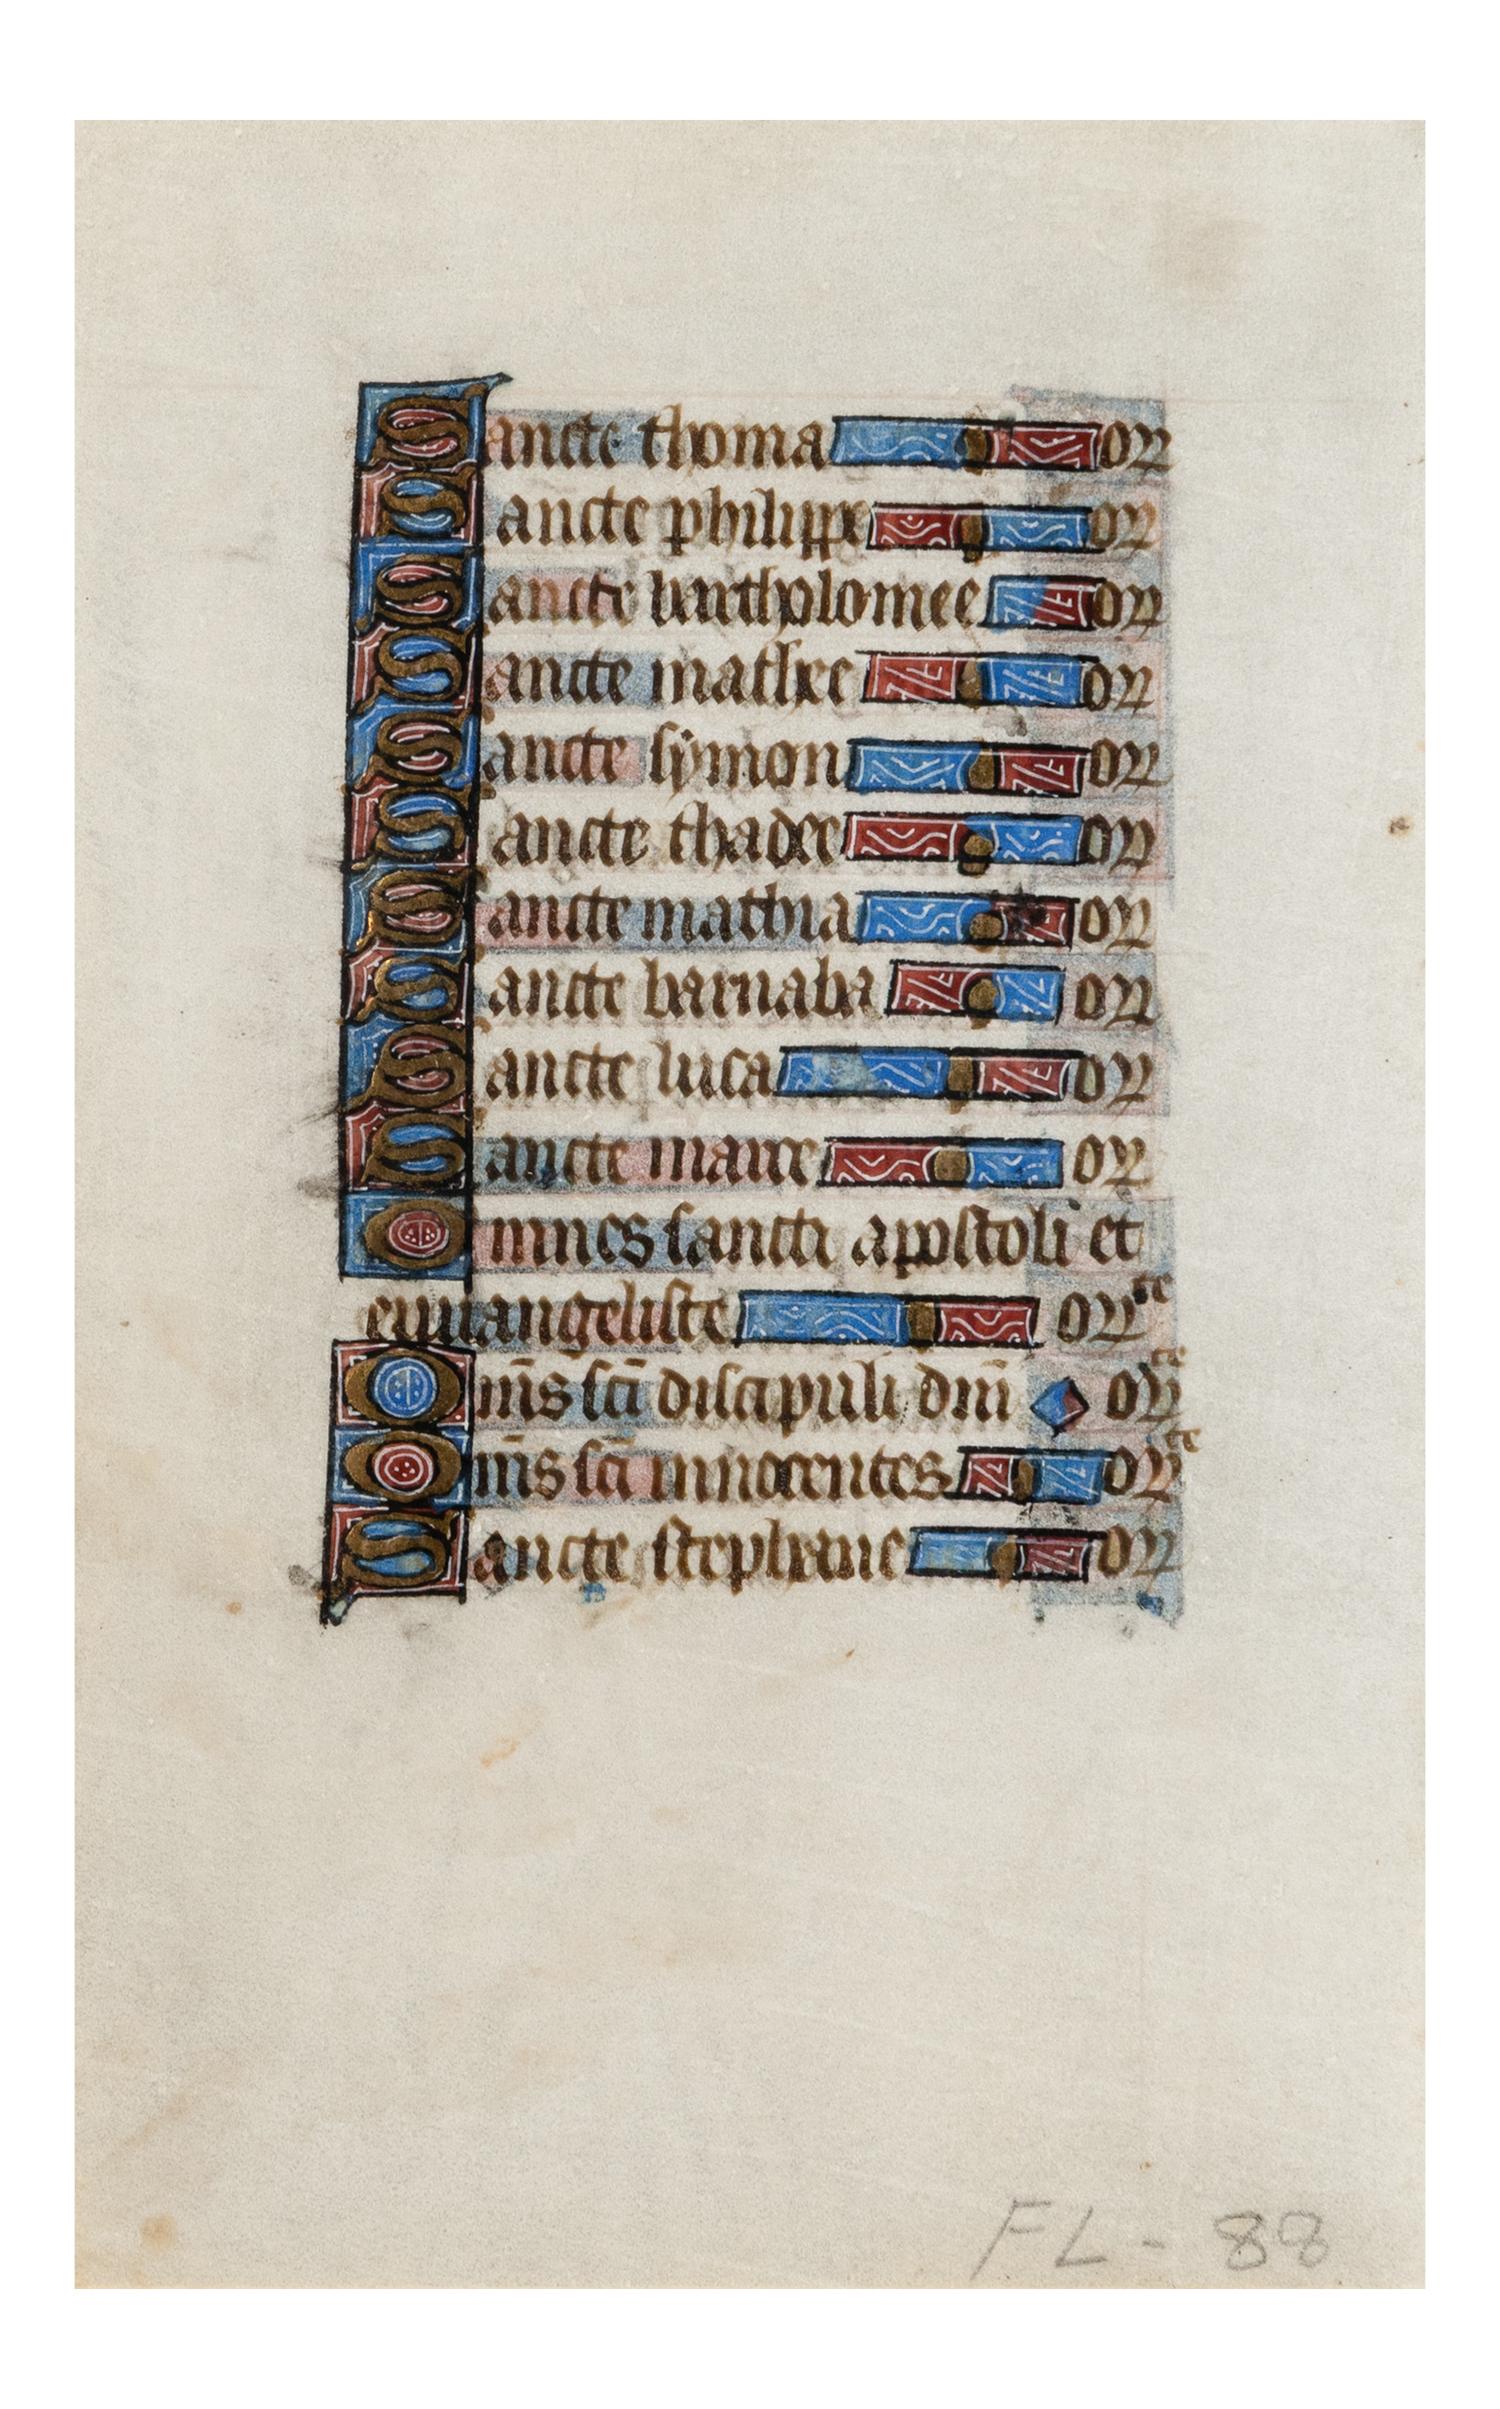 Sancte thoma or
Sancte philippe or
Sancte bartholomee or
Sancte mathee or
Sancte symon or
Sancte thadee or
Sancte mathia or
Sancte barnaba or
Sancte luca or
Sancte marce or
Omnes sancti apostoli et
euuangeliste orte
Om̄s sc̄i discipuli dn̄i orte
Om̄s sc̄i innocentes orte
Sancte stephane or
FL - 88